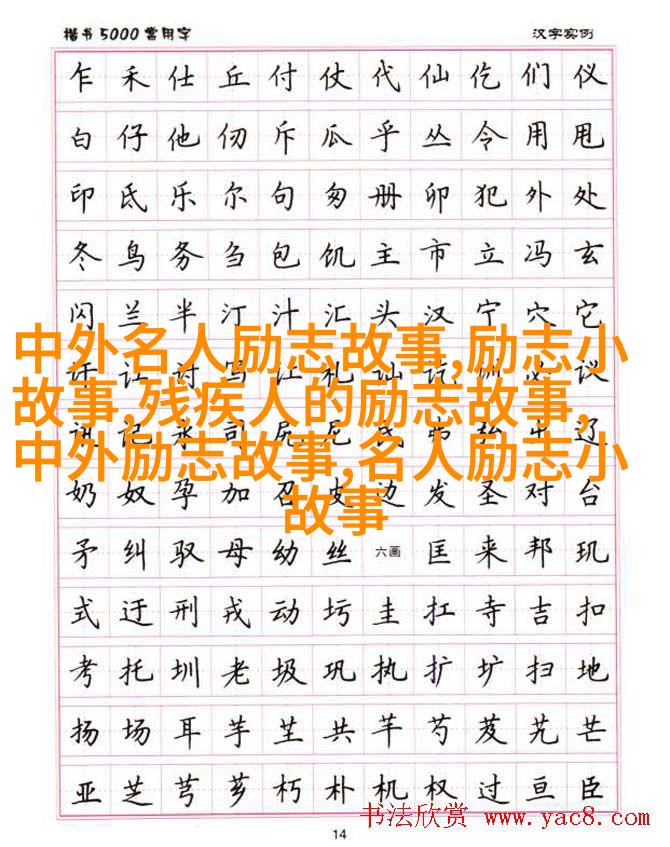 楷书5000常用字 汉字实例
乍 禾 仕 丘 付 仗 代 仙 仡 们 仪
白 仔 他 仞 斥 瓜 乎 丛 令 用 甩
印 氐 乐 尔 句 匆 册 卯 犯 外 处
冬 鸟 务 刍 包 饥 主 市 立 冯 玄
闪 兰 半 汀 汁 汇 头 汉 宁 穴 它
中外名人励志故事,励志小
让 讨 写 讧 礼 讪 讫 必 议
故事,残疾人的励志故事,
记 永 司 尻 尼 弗 辽
中外励志故事,名人励志小
奶 奴 孕 加 召 皮 边 发 圣 对 台
故事
矛 纠 驭 母 幼 丝 六画 匡 来 邦 玑
式 迂 刑 戎 动 圬 圭 扛 寺 吉 扣
考 托 圳 老 圾 巩 执 扩 圹 扫 地
扬 场 耳 芋 芏 共 芊 芍 芨 艽 芒
亚 芝 芎 芗 朽 朴 机 权 过 亘 臣
书法欣赏 www.yac8.com
14